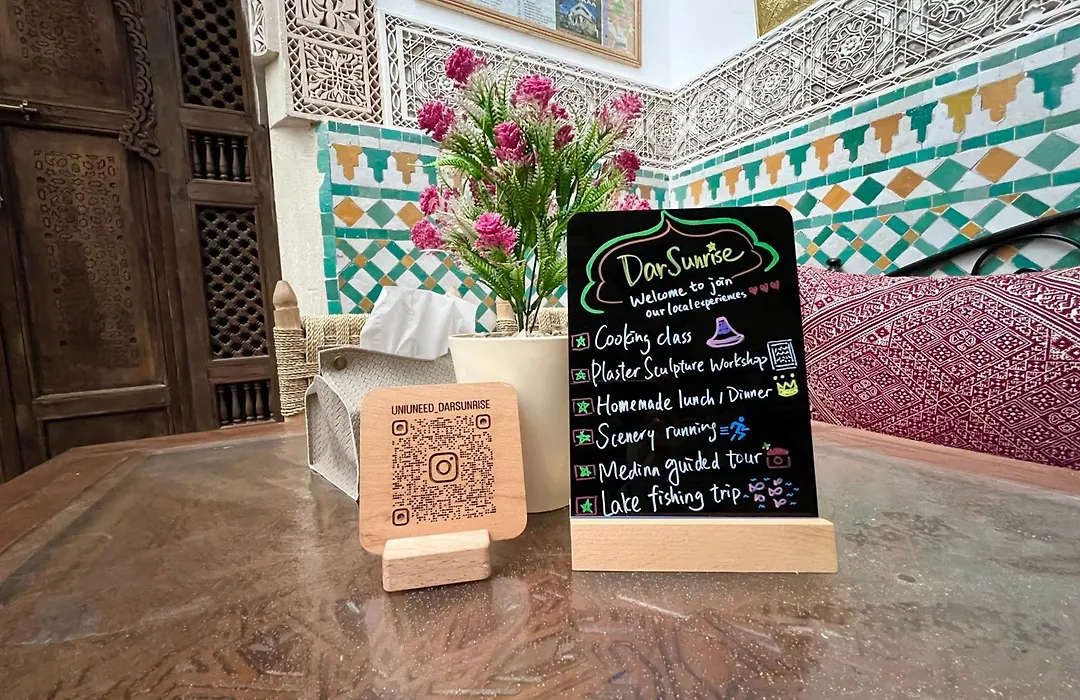 DarSunrise
Welcome to join
our local experiences
Cooking class
Plaster Sculpture Workshop
Homemade lunch / Dinner
Scenery running
Medina guided tour
Lake fishing trip
UNIUNEED_DARSUNRISE